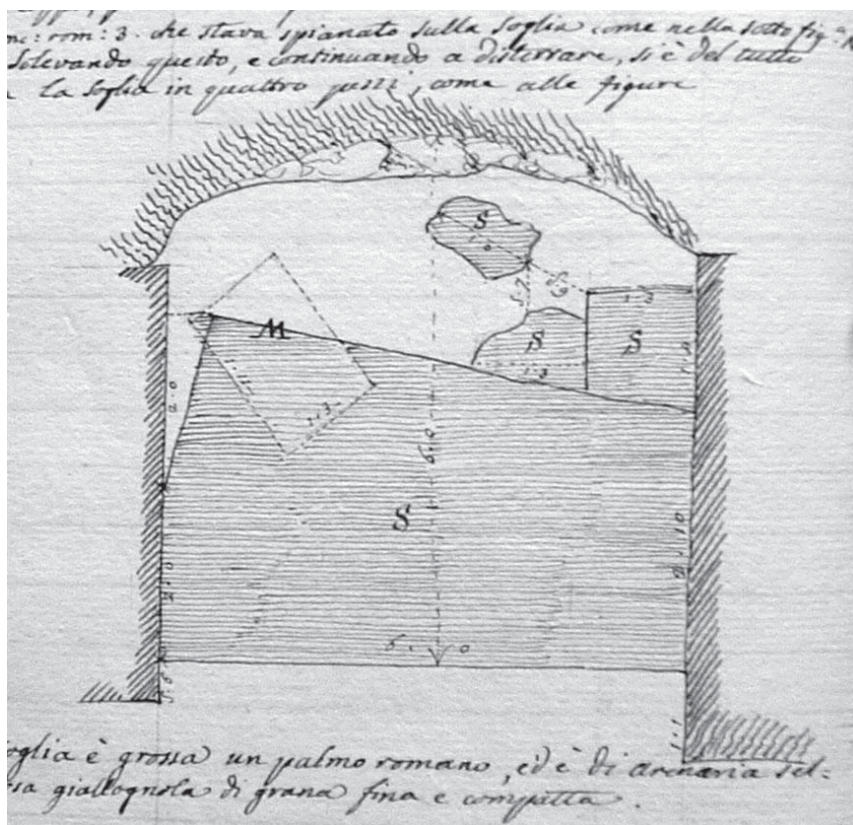 nc: rom: 3. che stava spianato sulla soglia come nella sotto fig.ª
Solevando questo, e continuando a disterrare, si è del tutto
la soglia in quattro pezzi, come alle figure
S
M
S
S
1..3
1..3
2..0
6..0
S
2..10
2..0
6..0
1..1
soglia è grossa un palmo romano, ed è di arenaria sel=
sa giallognola di grana fina e compatta.